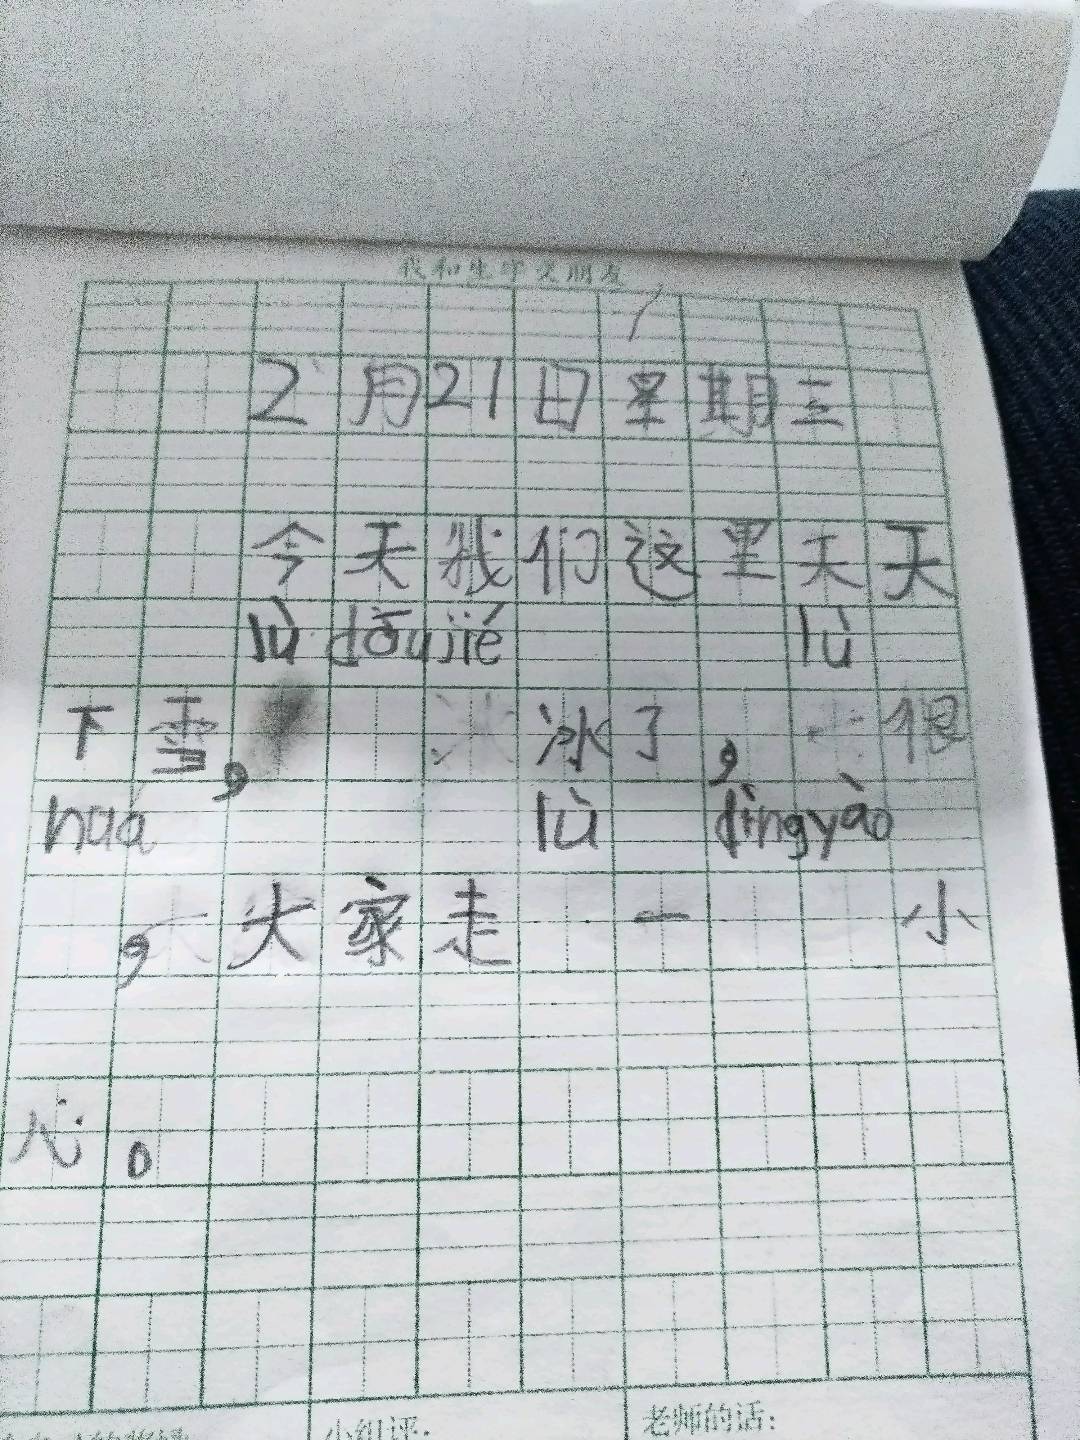 我和生字交朋友
2月21日星期三
今天我们这里天天
lù dōu jié lù
下雪,冰了,很
huá lù dìng yào
,大家走一小
心。
小组评:
老师的话: